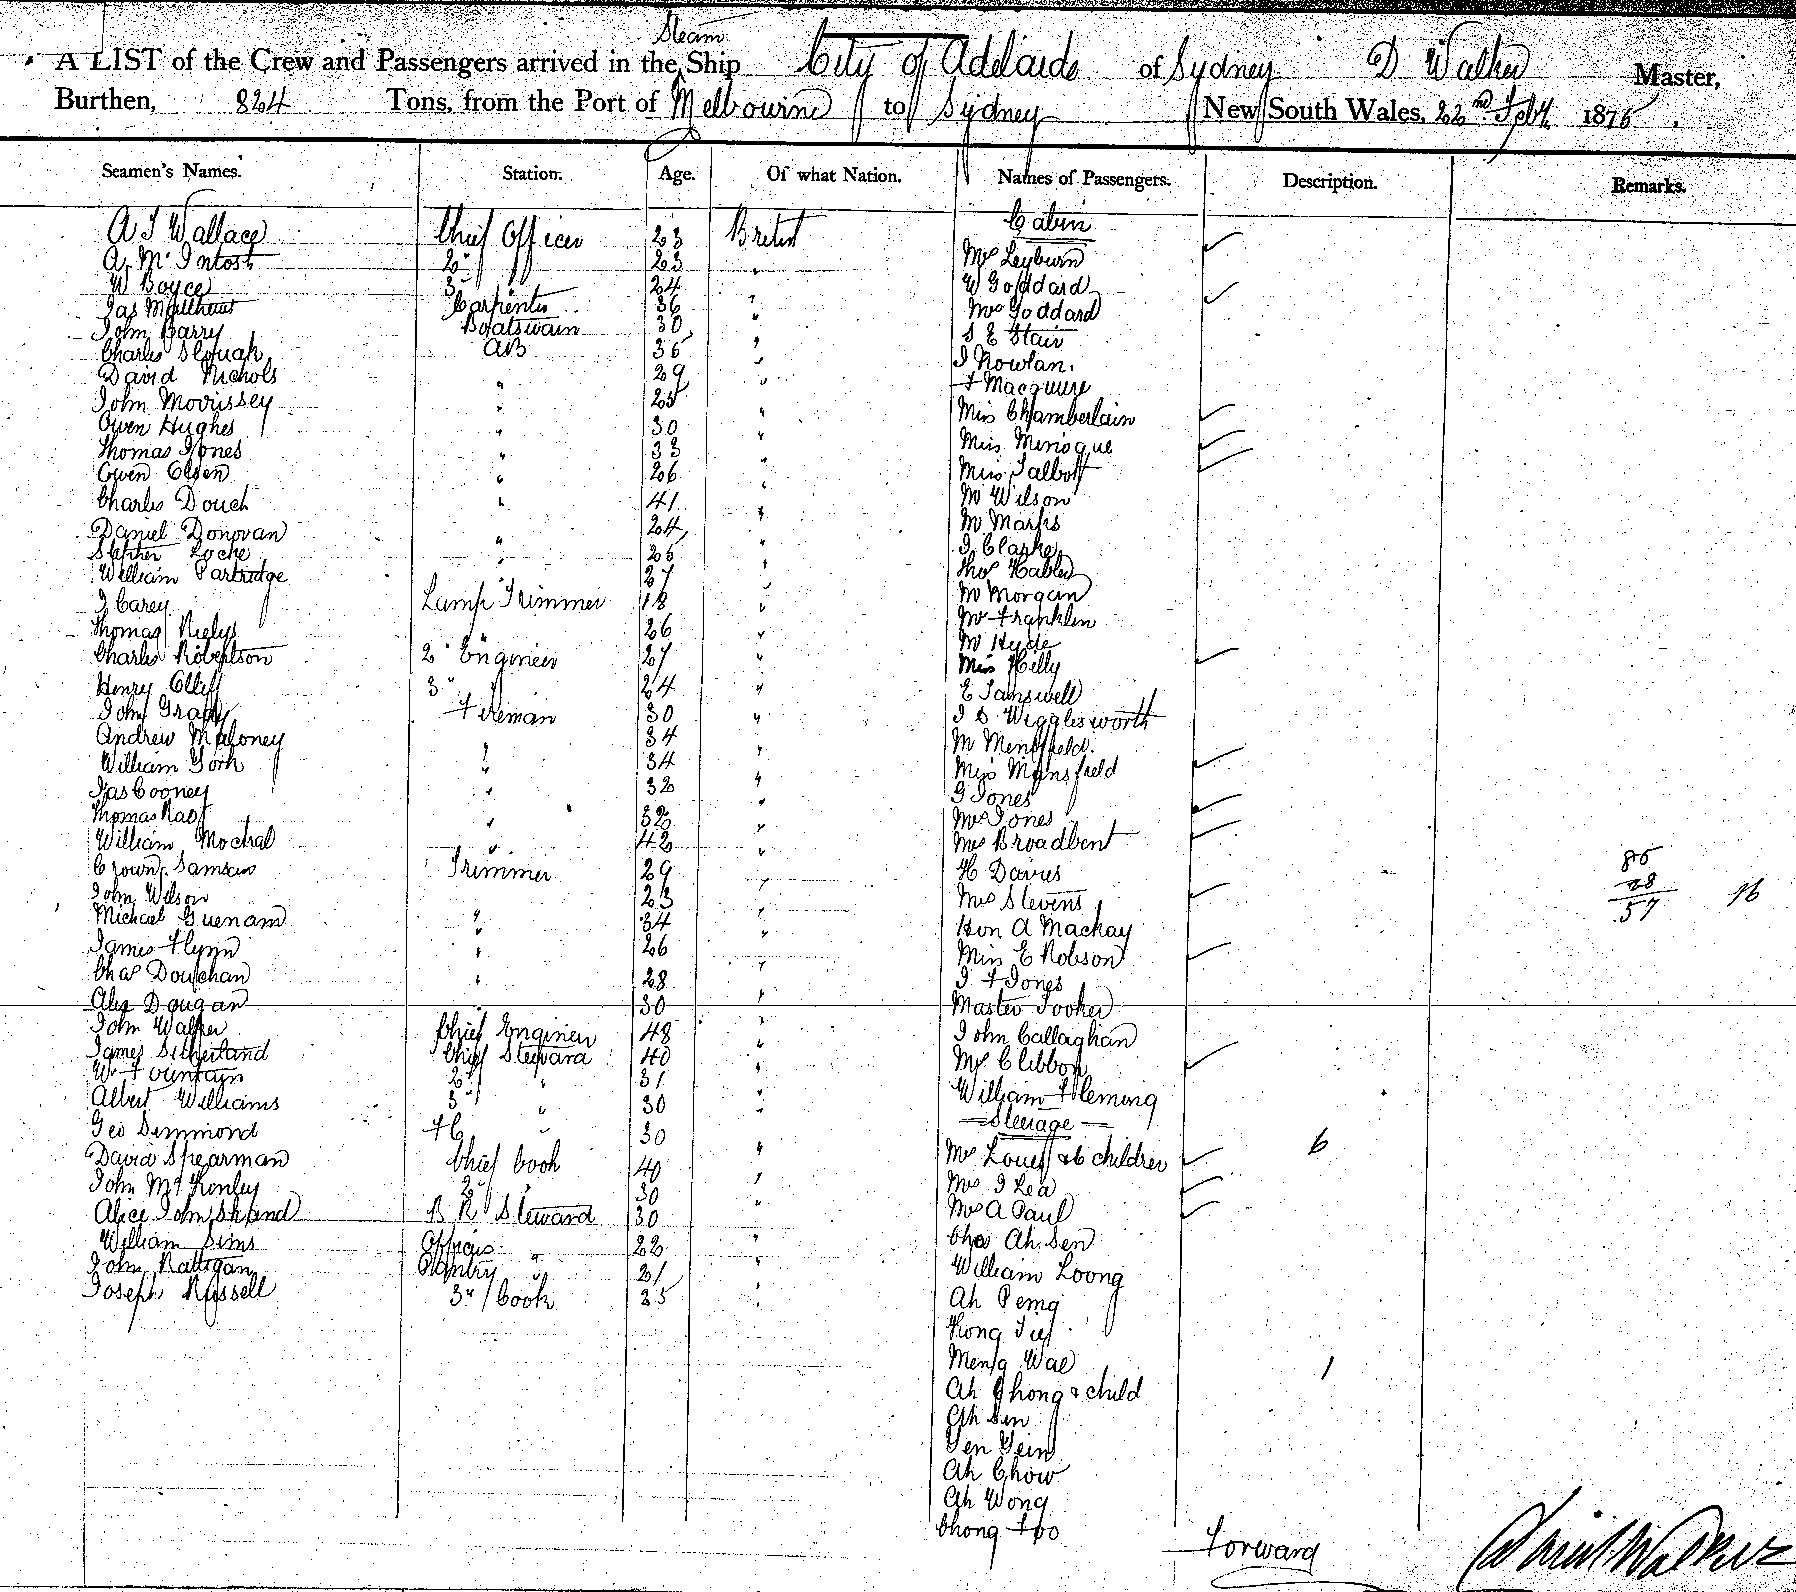 Steam
A LIST of the Crew and Passengers arrived in the Ship City of Adelaide of Sydney D Walker Master,
Burthen, 824 Tons, from the Port of Melbourne to Sydney New South Wales, 22nd Feby 1876
Seamen's Names. Station. Age. Of what Nation. Names of Passengers. Description. Remarks.
Cabin
A J Wallace Chief Officer 23 British
A. McIntosh 2" 23 " Mrs Leyburn
W Boyce 3" 24 W Goddard
Jas Carpenter 36 " Mrs Goddard
John Barry Boatswain 30 " S E Stair
Charles Slough AB 36 " J Nowlan.
David Nichols " 29 " F Macquire
John Morrissey " 25 " Miss Chamberlain
Owen Hughes " 30 " Miss Minogue
Thomas Jones " 33 " Miss Talbot
Owen Olsen " 26 " Mr Wilson
Charles Douch " 41 " Mr Marks
Daniel Donovan " 24 " J Clarke
Stephen Locke " 25 " Thos
William Partridge " 27 " Mr Morgan
J Carey Lamp Trimmer 18 " Mr Franklin
Thomas " 26 " Mr Hyde
Charles Robertson 2" Engineer 27 " Miss Hilly
Henry Olliff 3" " 24 " E Tanswell
John Grady Fireman 30 " J S Wigglesworth
Andrew Maloney " 34 " M
William York " 34 " Miss Mansfield
Jas Cooney " 32 " G Jones
Thomas " 32 " Mrs Jones
William " 42 " Mrs Broadbent
Trimmer 29 " H Davies
John Wilson 23 " Mrs Stevens
85
28
57 16
Michael " 34 " Hon A Mackay
James Flynn " 26 " Miss E Robson
Chas " 28 " J F Jones
Alex Dougan " 30 " Master Tooker
John Walker Chief Engineer 48 " John Callaghan
James Sutherland Chief Steward 40 " Mrs Clibbon
W Fountain 2" " 31 " William Fleming
Albert Williams 3" " 30 "
Steerage
Geo Simmond " 30 " Mrs & 6 children 6
David Spearman Chief Cook 40 " Mrs J Lea
John 2" " 30 " Mrs A Paul
Alice Steward 30 Chas Ah Sen
William Sims " 22 " William Loong
John Rattigan Pantry " 21 " Ah Pemg
Joseph Russell 3" Cook 25 "
Meng Wae
Ah Chong & child 1
Ah Sen
Ah Chow
Ah Wong
Chong Foo
Forward David Walker